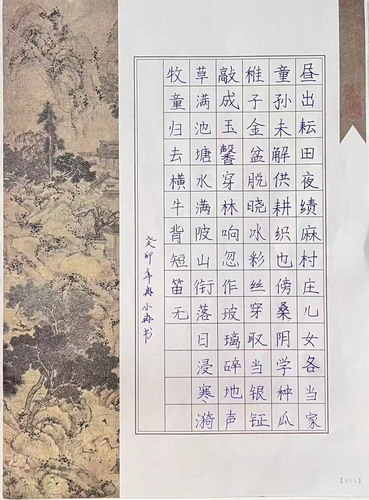 昼出耘田夜绩麻村庄儿女各当家
童孙未解供耕织也傍桑阴学种瓜
稚子金盆脱晓冰彩丝穿取当银钲
敲成玉馨穿林响忽作玻璃碎地声
草满池塘水满陂山衔落日浸寒漪
牧童归去横牛背短笛无
癸卯年冉小冉书